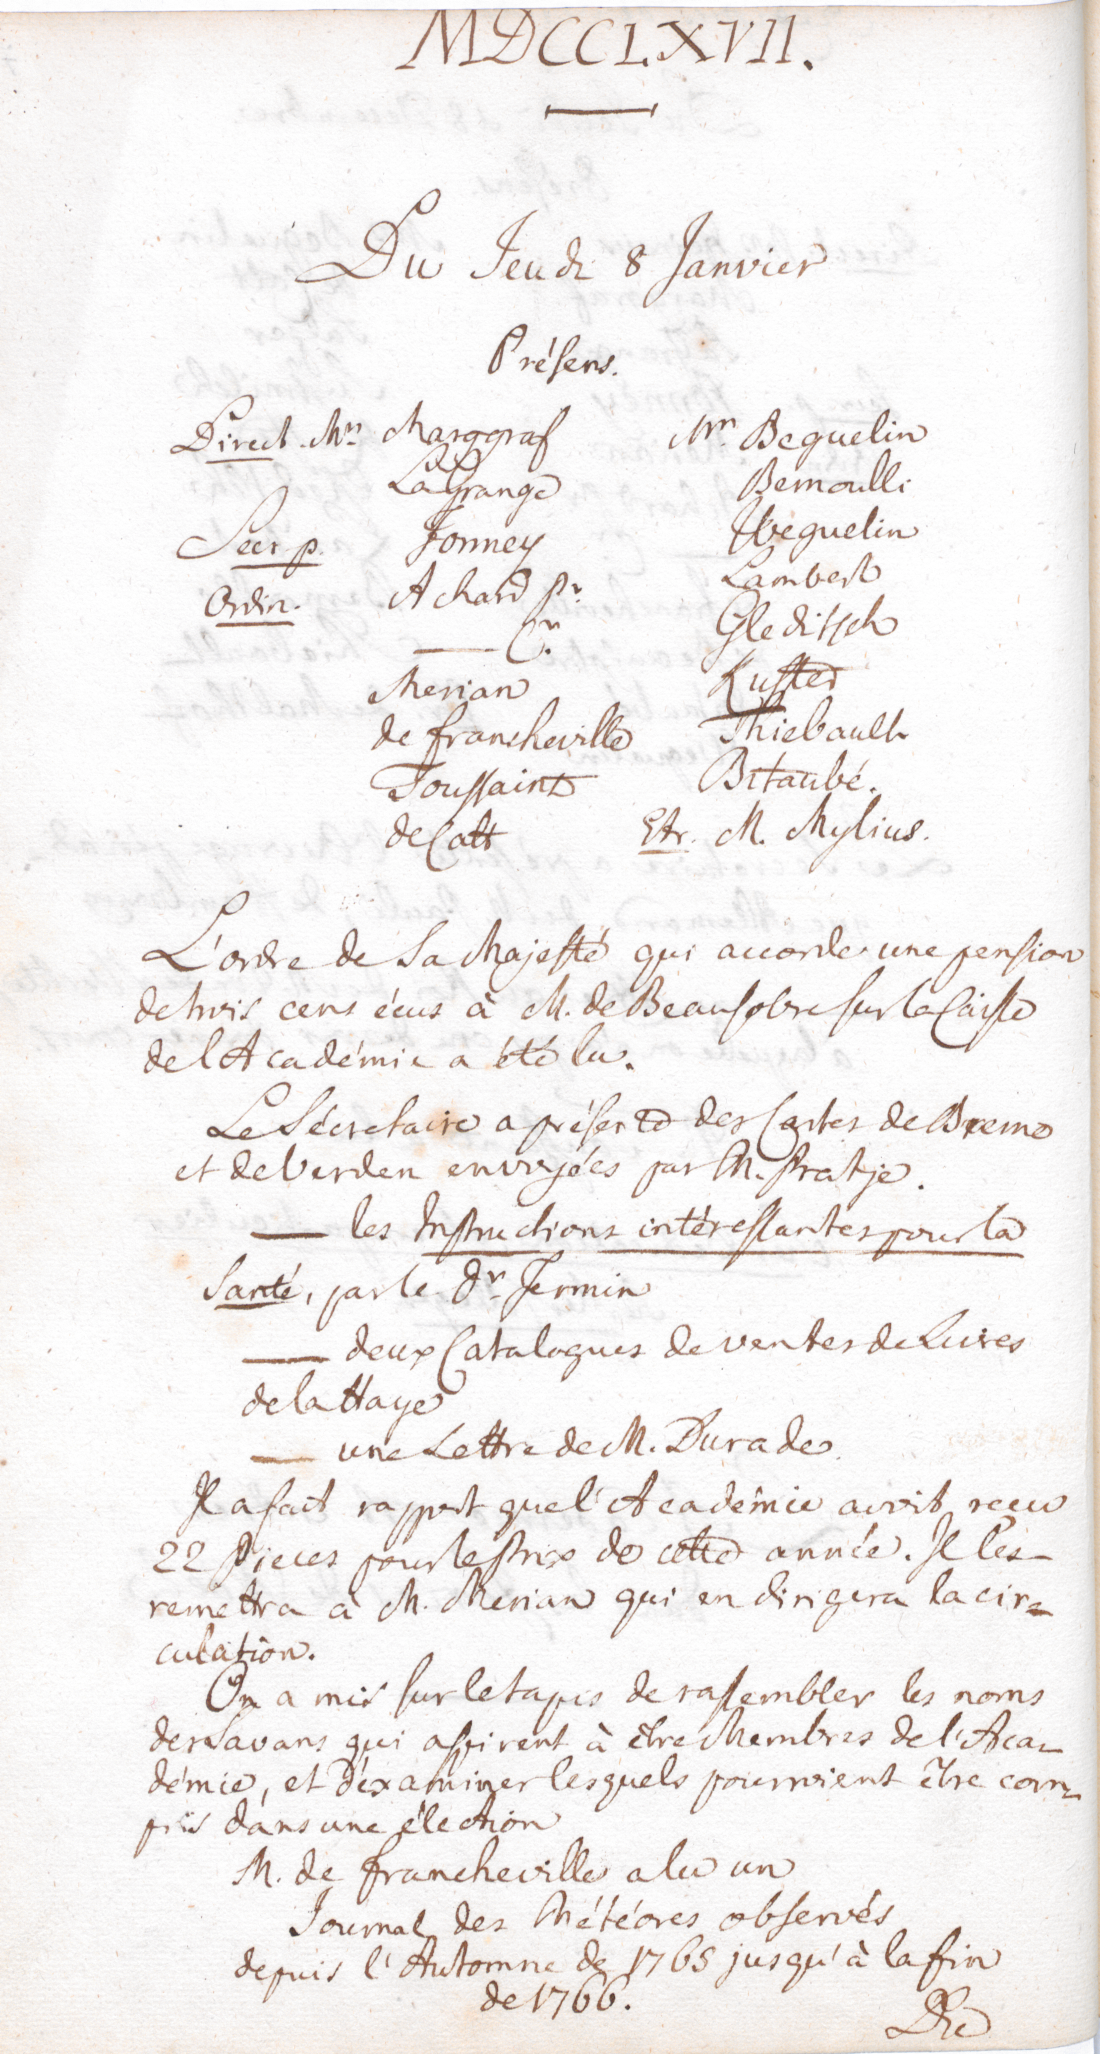 MDCCLXVII.
Du Jeudi 8 Janvier
Présens.
Direct. Mrs Marggraf
LaGrange
Secr. p. Formey
Ordin. Achard Pr.
Cr.
Merian
de Francheville
Toussaint
de Catt
Mrs Beguelin
Bernoulli
Weguelin
Lambert
Gleditsch
Kuster
Thiebault
Bitaubé.
Etr. M. Mylius.
L'ordre de Sa Majesté qui accorde une pension
de trois cens écus à M. de Beausobre sur la Caisse
de l'Académie a été lu.
Le Sécretaire a présenté des Cartes de Breme
et de Verden envoyées par M. Pratje.
— les Instructions intéressantes pour la
Santé, par le Dr. Fermin
— deux Catalogues de ventes de Livres
de la Haye
— une Lettre de M. Durade.
Il a fait rapport que l'Académie avoit recu
22 Pieces pour le Prix de cette année. Il les
remettra à M. Merian qui en dirigera la cir-
culation.
On a mis sur le tapis de rassembler les noms
des Savans qui aspirent à être Membres de l'Aca-
démie, et d'éxaminer lesquels pourroient être com-
pris dans une élection
M. de Francheville a lu un
Journal des Météores observés
depuis l'Automne de 1765 jusqu'à la fin
de 1766.
Du